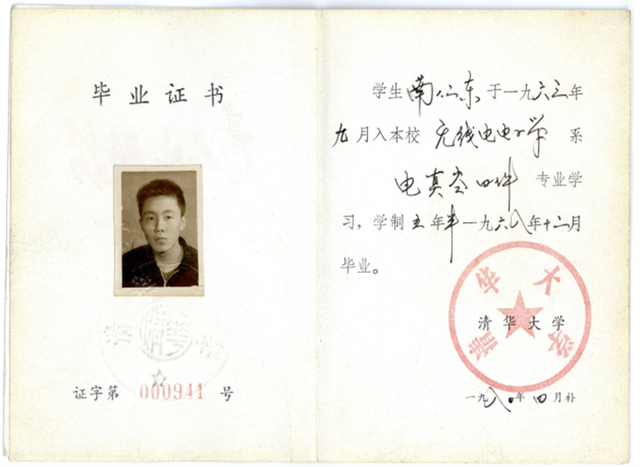 毕业证书
证字第 000941 号
学生南仁东于一九六三年
九月入本校无线电电子学系
电真空器件专业学
习，学制五年半一九六八年十二月
毕业。
清华大学
清华大学
一九八〇年四月补